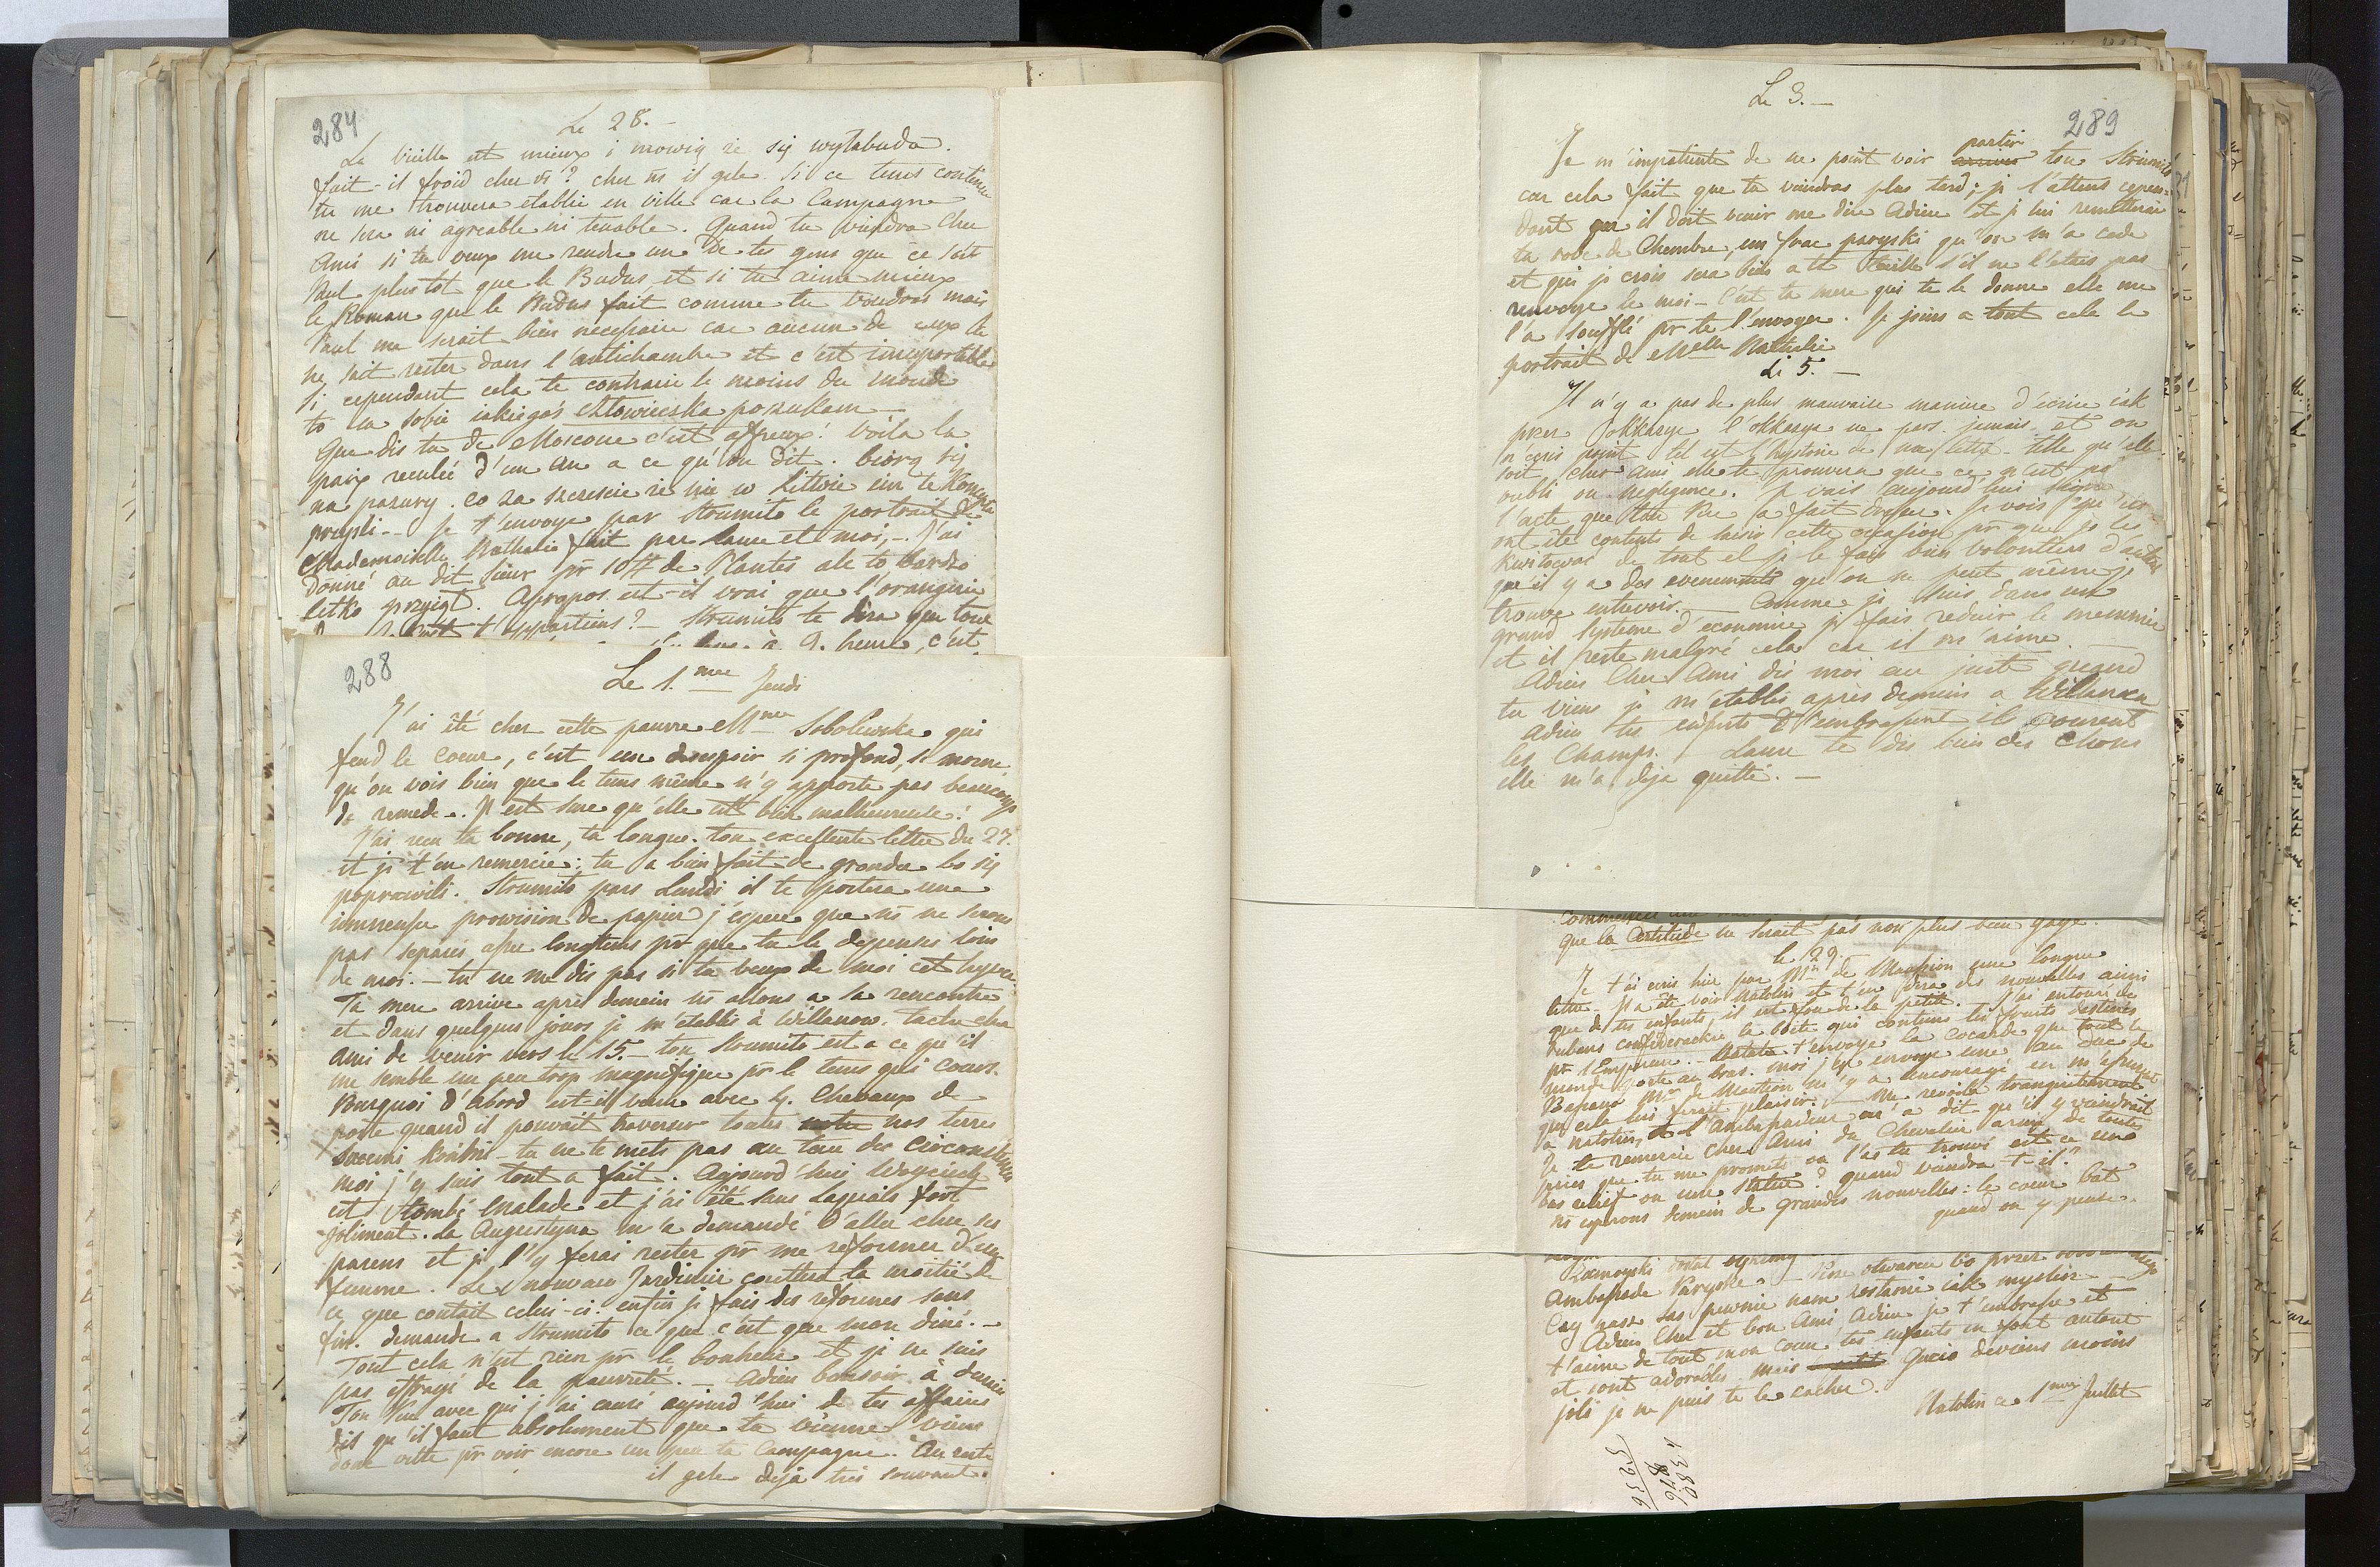 284
Le 28. —
La vieille est mieux i mowią ze się wylabuda.
fait-il froid chez vs? chez ns il gele. Si ce tems continue
tu me trouvera etablie en ville car la Campagne
ne sera ni agreable ni tenable. Quand tu viendra cher
Ami si tu veux me rendre un de tes gens que ce soit
Paul plustot que le Budus et si tu aime mieux
le Roman que le Budus fait comme tu voudras mais
Paul me serait bien necessaire car aucun de ceux la
ne sait rester dans l'antichambre et c'est insuportable
Si cependant cela te contrarie le moins du monde
to ia sobie iakiegoś człowieczka poszukam —
Que dis tu de Moscoue c'est affreux! voila la
paix reculée d'un an a ce qu'on dit. biorą się
na pazury. co za szczescie ze nie w Littwie ein te
przyszli — Je t'envoye par Strumito le portrait de
Mademoiselle Nathalie fait par Laure et moi, — J'ai
donné au dit Sieur pr 10 # de Plantes ale to bardzo
letko przyiął. Apropos est-il vrai que l'orangerie
t'appartiens? — Strumito te dira que tout
à 9. heure, c'est
288
Le 1.mier Jeudi
J'ai été chez cette pauvre Mme Sobolewska qui
fend le coeur, c'est un desespoir si profond, si morne
qu'on vois bien que le tems même n'y apporte pas beaucoup
de remede. Il est sure qu'elle est bien malheureuse!
J'ai reçu ta bonne, ta longue. ton excellente lettre du 27.
et je t'en remercie; tu a bien fait de gronder bo się
poprawili. Strumito pars Lundi il te portera une
immense provision de papier j'espere que ns ne serons
pas separés assez longtems pr que tu le depenses loin
de moi. — tu ne me dis pas si tu veux de moi cet hyver
Ta mere arrive après demain ns allons a sa rencontre
et dans quelques jours je m'etablis à Willanow. tache cher
ami de venir vers le 15. — ton Strumito est a ce qu'il
me semble un peu trop magnifique pr le tems qui cours.
Pourquoi d'abord est-il venu avec 4. Chevaux de
poste quand il pouvait traverser toutes notre nos terres
swemi końmi — tu ne te mets pas au ton des circonstances
moi j'y suis tout a fait. Aujourd'hui Woyciech
est tombé malade et j'ai été sans Laquais fort
joliment. La Augustyna m'a demandé d'aller chez ses
parens et je l'y ferai rester pr me reformer d'une
femme. Le nouveau Jardinier coutera la moitié de
ce que coutait celui-ci. enfin je fais des reformes sans
fin. demande a Strumito ce que c'est que mon diné. —
Tout cela n'est rien pr le bonheur et je ne suis
pas effrayé de la pauvreté. — Adieu bonsoir à demain
Ton Pere avec qui j'ai causé aujourd'hui de tes affaires
dit qu'il faut absolument que tu vienne viens
donc vitte pr voir encore un peu ta Campagne. Au reste
il gele deja très souvent.
289
Le 3. —
Je m'impatiente de ne point voir arriver partir ton Strumito
car cela fait que tu viendras plus tard; je l'attens cepen-
dant car il doit venir me dire Adieu et je lui remetterai
ta robe de Chambre, un frac paryski qu'on m'a cedé
et qui je crois sera bien a ta taille s'il ne l'etais pas
renvoye le moi — C'est ta mere qui te le donne elle me
l'a soufflé pr te l'envoyer. Je joins a tout cela le
portrait de Melle Nathalie
Le 5. —
Il n'y a pas de plus mauvaise maniere d'écrire iak
przez okkazye l'okkazye ne pars jamais et on
n'ecris point tel est l'hystoire de ma lettre. telle qu'elle
soit, cher Ami elle te prouvera que ce n'est pas
oubli ou negligence. Je vais aujourd'hui signer
l'acte que ton Pere a fait dresser. Je vois qu'ils
ont été contents de saisir cette occasion pr que je les
kwitować de tout et je le fais bien volontiers d'autant
qu'il y a des evenements qu'on ne peut même
trouve entrevoir. — Comme je suis dans un
grand Systeme d'economie je fais reduire le
et il reste malgré cela car il m'aime —
Adieu Cher Ami dis moi au juste quand
tu viens je m'etablis après demain a Willanow
Adieu tes enfants t'embrassent ils courent
les Champs. Laure te dis bien des choses
elle m'a deja quitté. —
que la Certitude ne serait pas non plus bien gaye.
le 29. —
Je t'ai ecris hier par Mr de Maussion une longue
lettre. Il a été voir Natolin et t'en dira des nouvelles ainsi
que de tes enfants, il est fou de la petite. J'ai entouré de
Rubans confederackie la boëte qui contiens tes fruits destinés
pr l'Empereur. — Natalia t'envoye la Cocarde que tout le
monde porte au bras. moi j'en envoye une au Duc de
Bassano Mr de Maussion m'y a encouragé en m'assurant
que cela lui ferait plaisir. — Me revoila tranquillement
a Natolin, et l'Ambassadeur m'a dit qu'il y viendrait
Je te remercie cher Ami du Chevalier armé de toutes
pieces que tu me promets ou l'as tu trouvé est ce une
bas relief ou une statue? quand viendra t-il?
ns esperons demain de grandes nouvelles: le coeur bat
quand on y pense.
Zamoyski
Ambassade Paryska. —
Czy nasz Sas pewnie nam zostanie iak myslisz —
Adieu Cher et bon Ami Adieu je t'embrasse et
t'aime de tout mon coeur tes enfants en font autant
et sont adorables mais Gucio deviens moins
joli je ne puis te le cacher.
Natolin ce 1mier Juillet